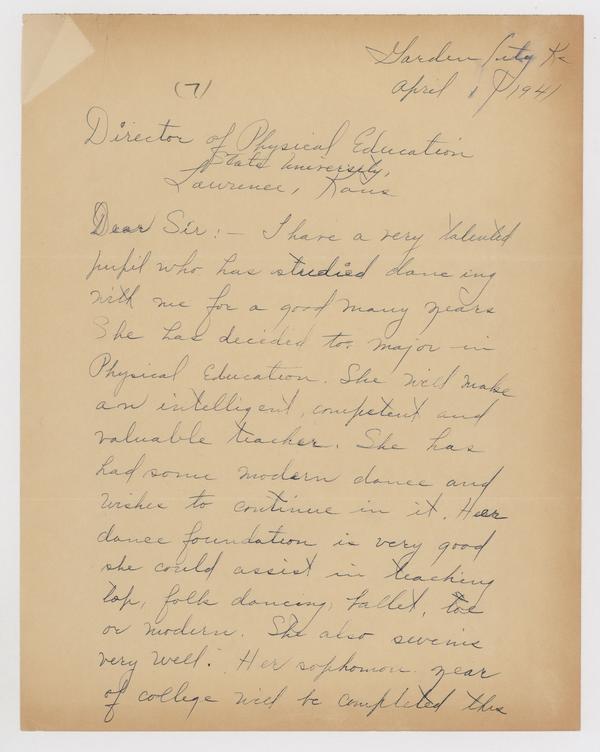 Garden City Ks
April 17 1941
(7)
Director of Physical Education
State University,
Lawrence, Kans
Dear Sir:- I have a very talented
pupil who has studied dancing
with me for a good many years
She has decided to major in
Physical Education. She will make
an intelligent, competent and
valuable teacher. She has
had some modern dance and
wishes to continue in it. Her
dance foundation is very good
she could assist in teaching
tap, folk dancing, ballet, toe
or modern. She also swims
very well. Her sophomore year
of college will be completed this